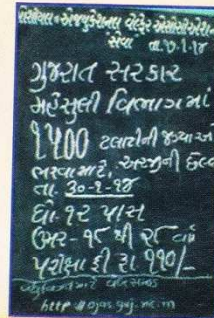 સોશિયલ એન્ડ એજ્યુકેશનલ વેલ્ફેર એસોસીએશન
સેવા તા.૭-૧-૧૪
ગુજરાત સરકાર
મહેસુલી વિભાગમાં
૧૫૦૦ તલાટીની જગ્યાઓ
ભરવા માટે, અરજીની છેલ્લી
તા. ૩૦-૧-૧૪
ધો. ૧૨ પાસ
ઉંમર - ૧૮ થી ૨૮ વર્ષ
પરીક્ષા ફી રૂા. ૧૧૦/-
માટે
http://ojas.guj.nic.in